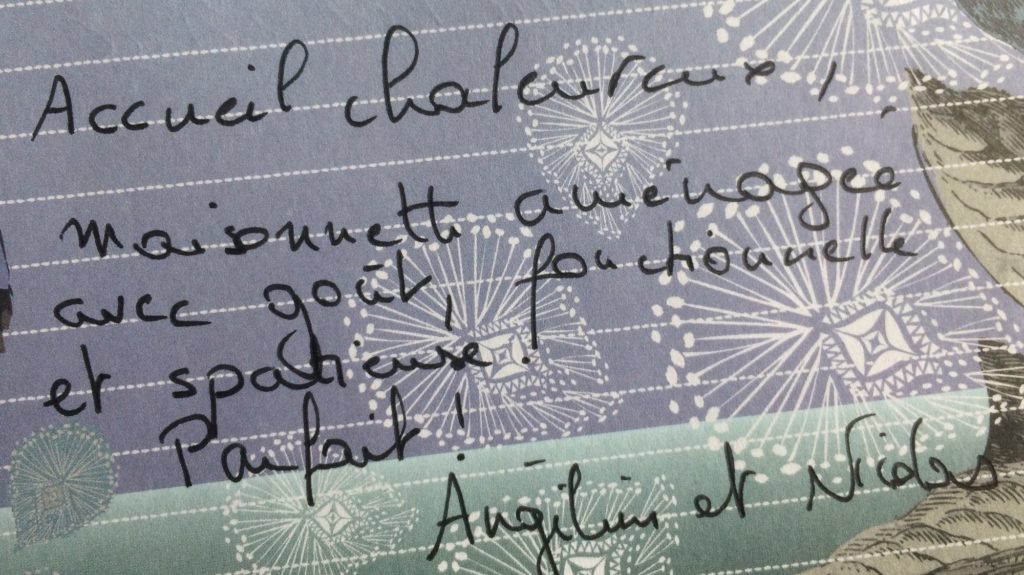 Accueil chaleureux,
maisonnette aménagée
avec goût, fonctionnelle
et spatieuse!
Parfait!
et Nicolas